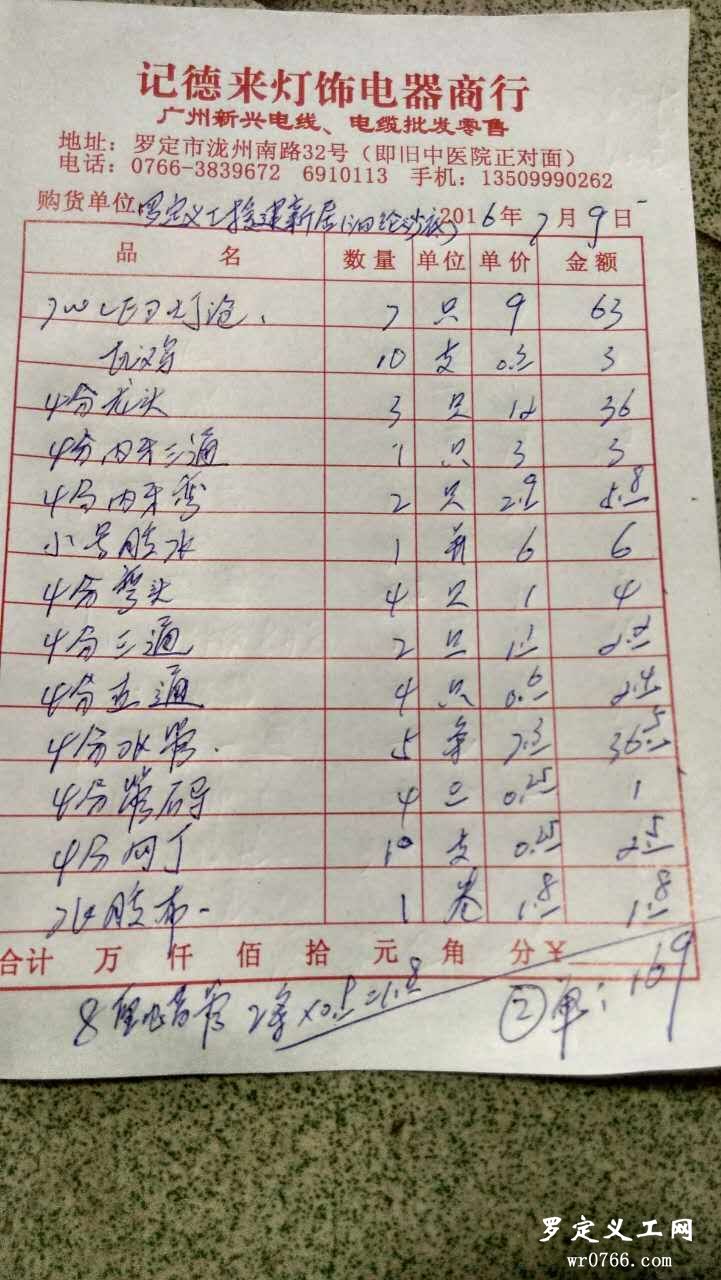 记德来灯饰电器商行
广州新兴电线、电缆批发零售
地址：罗定市泷州南路32号（即旧中医院正对面）
电话：0766-3839672 6910113 手机：13509990262
购货单位 罗定义工援建新居 2016年7月9日
品名 数量 单位 单价 金额
7W LED灯泡 7 只 9 63
10 支 0.3 3
4分龙头 3 只 12 36
4分内牙三通 1 只 3 3
4分内牙弯 2 只 2.9 5.8
小号胶水 1 6 6
4分弯头 4 只 1 4
4分三通 2 只 1.1 2.2
4分直通 4 只 0.6 2.4
4分水管 5 条 7.3 36.5
4分管码 4 只 0.25 1
4分 10 支 0.25 2.5
胶布 1 卷 1.8 1.8
合计 万 仟 佰 拾 元 角 分 ¥ 169
8 2条 ②单：
罗定义工网
wr0766.com